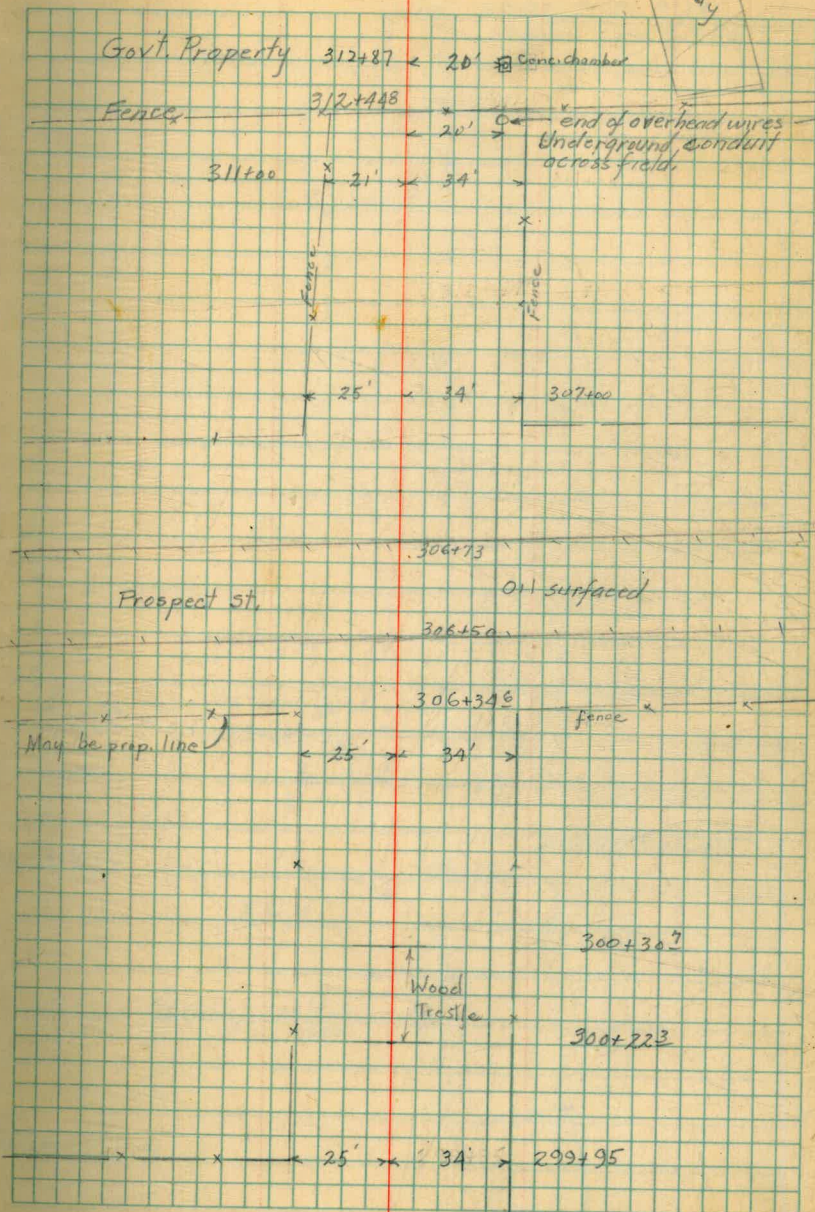 Gov't. Property 312+87 20' Conc. chamber
Fence 312+448
20' end of overhead wires
Underground conduit
across field.
311+00 21' 34'
Fence Fence
25' 34' 307+00
306+73
Prospect St. Oil surfaced
306+50
306+34 6
fence
May be prop. line 25' 34'
300+30 7
Wood
Trestle
300+22 3
25' 34' 299+95